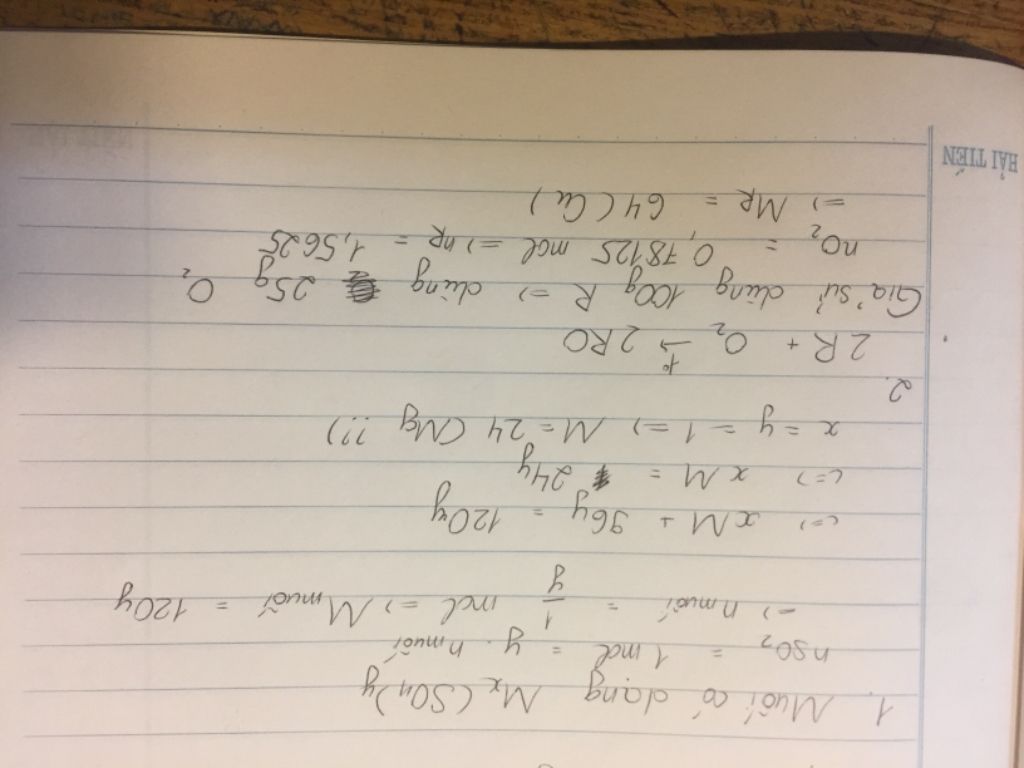 HẢI TIẾN
1. Muối có dạng Mx(SO4)y
nSO2 = 1 mol = y. nmuối
=> nmuối = 1/y mol => Mmuối = 120y
<=> xM + 96y = 120y
<=> xM = 24y
x = y = 1 => M = 24 (Mg ??)
2.
2R + O2 t°→ 2RO
Giả sử dùng 100g R => dùng 25g O2
nO2 = 0,78125 mol => nR = 1,5625
=> MR = 64 (Cu)